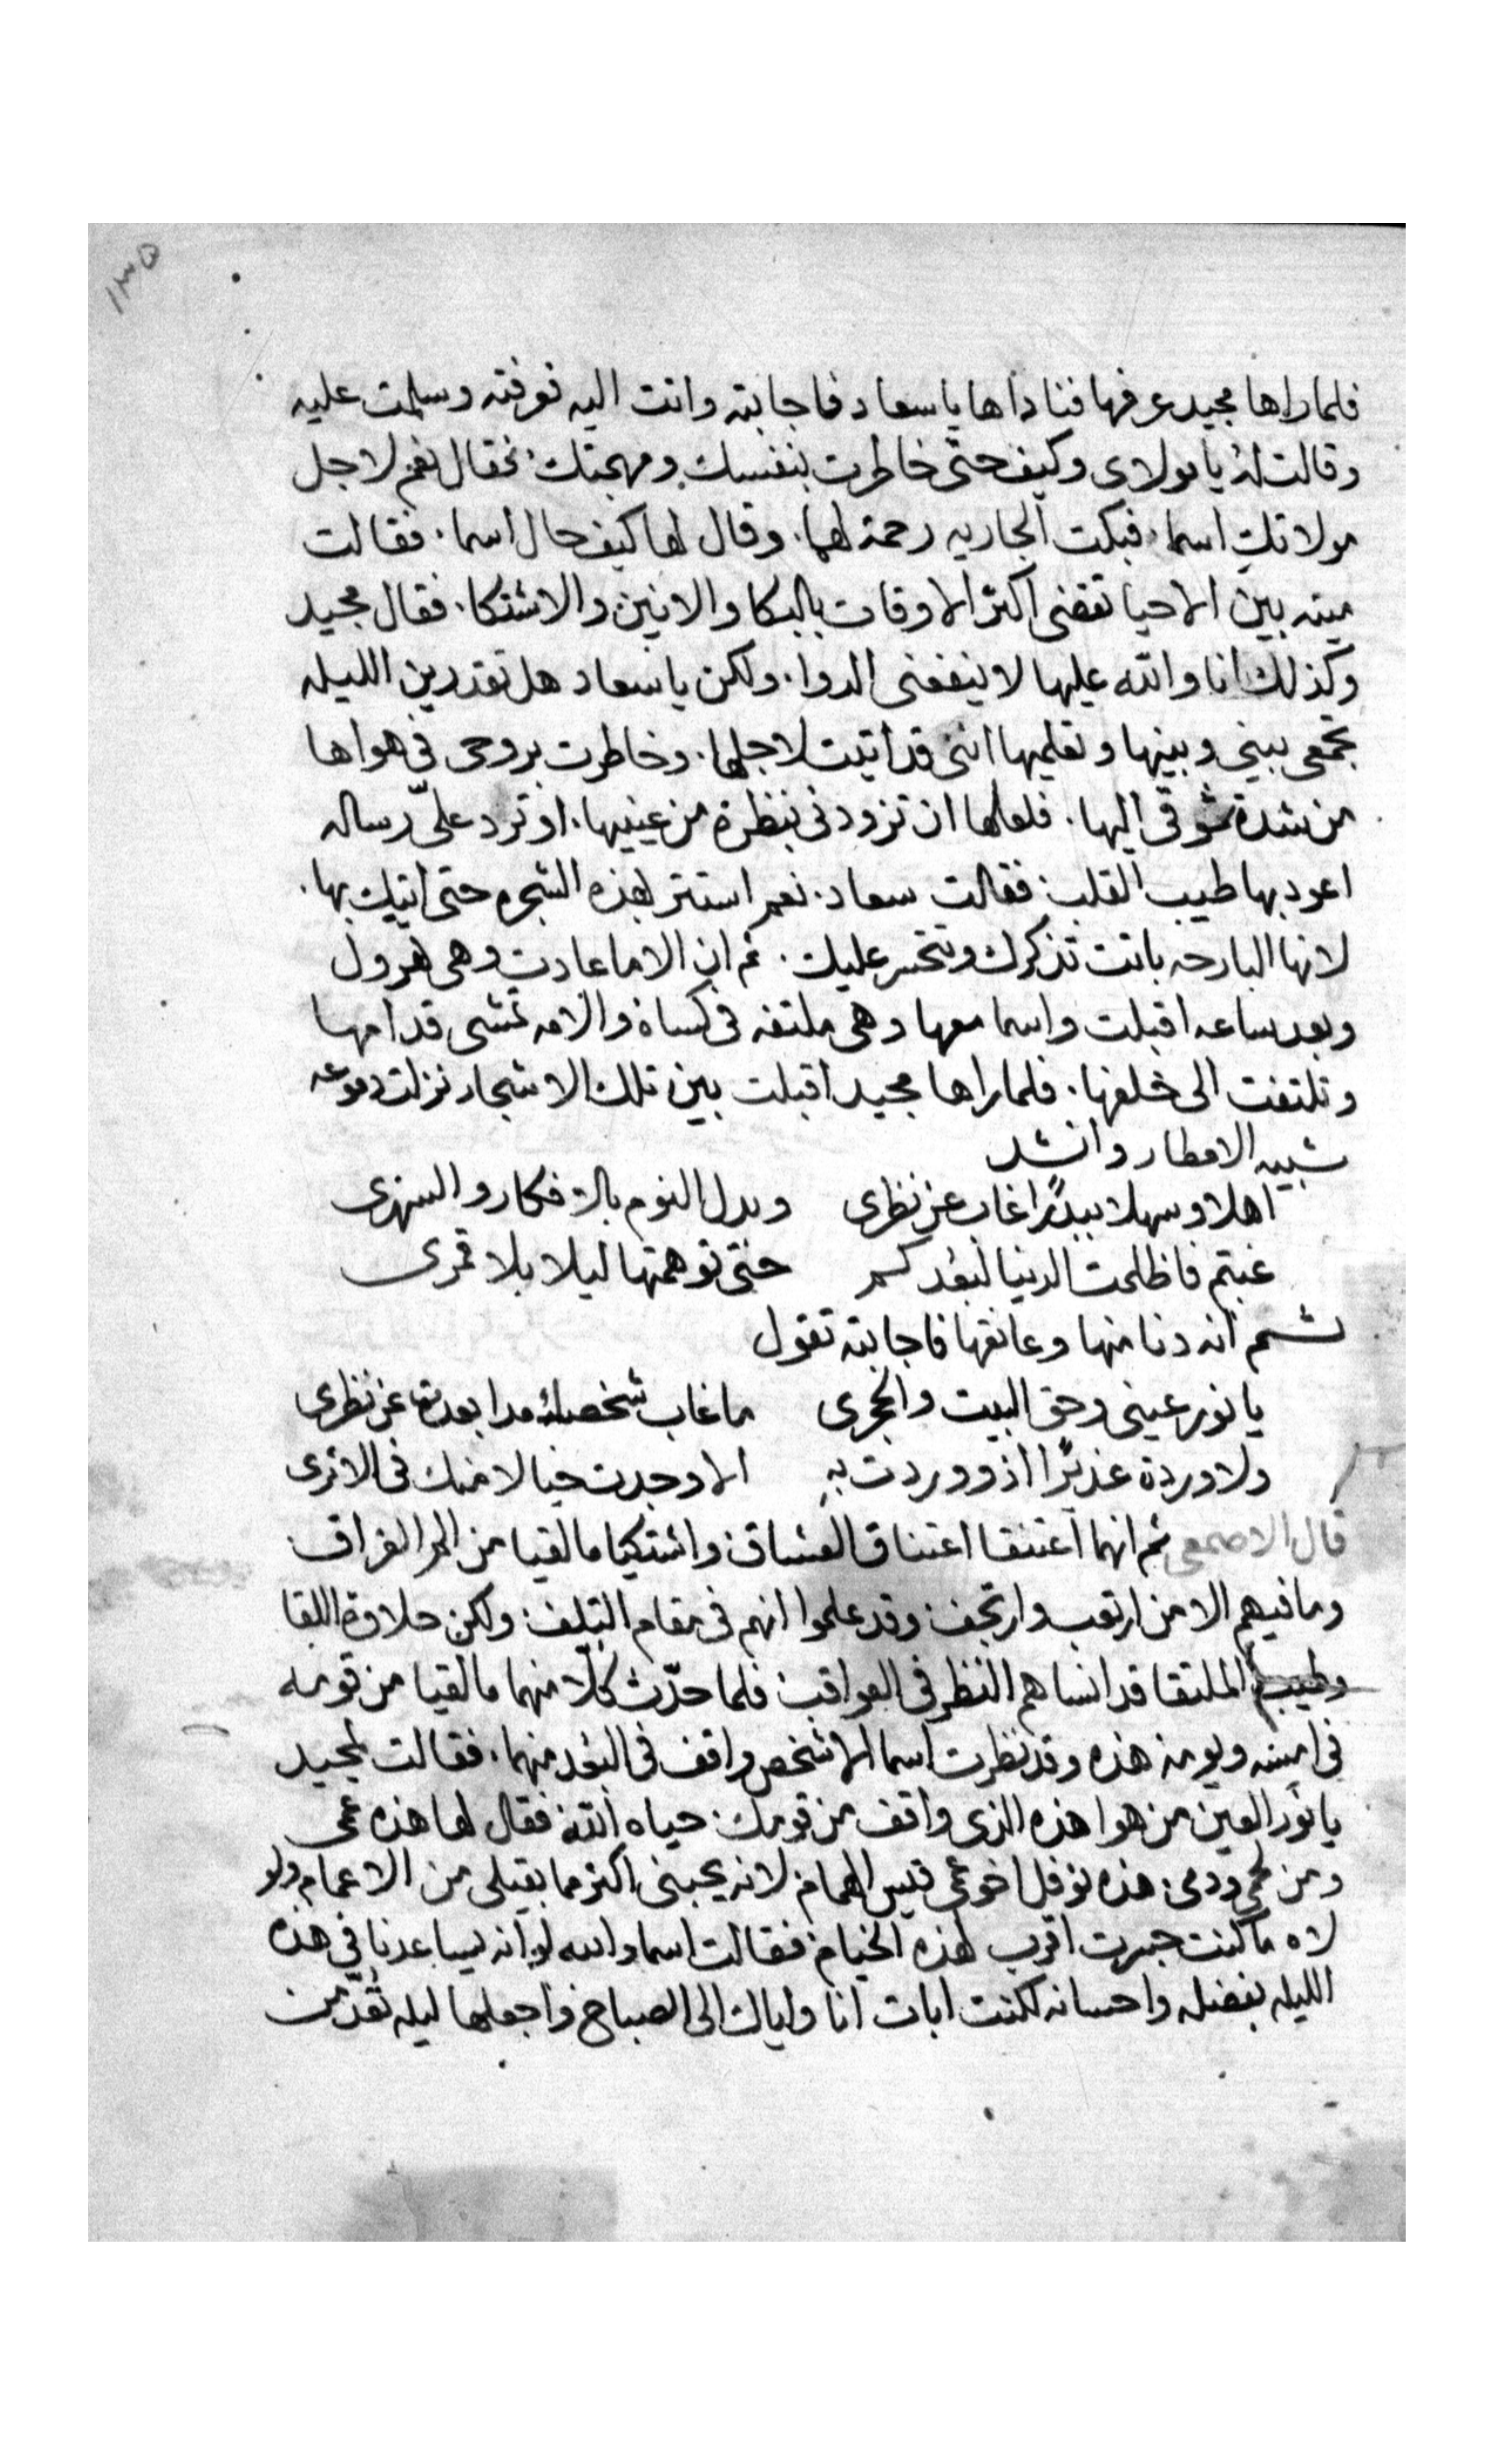 ١٣٥
فلما راها مجيد عرفها فناداها يا سعاد فاجابته واتت اليه فعرفته وسلمت عليه
وقالت له يا مولاى وكيف حتى خاطرت بنفسك ومهجتك. فقال نعم لاجل
مولاتكِ اسما. فبكت الجاريه رحمة لهما. وقال لها كيف حال اسما. فقالت
ميته بين الاحيا تقضى اكثر الاوقات بالبكا والانين والاشتكا. فقال مجيد
وكذلك انا والله عليها لا ينفعنى الدوا. ولكن يا سعاد هل تقدرين الليله
تجمعى بينى وبينها وتعلميها اننى قد اتيت لاجلها. وخاطرت بروحى فى هواها
من شدة شوقى اليها. فلعلها ان تزودنى بنظرة من عينيها. او ترد علىّ رساله
اعود بها طيب القلب. فقالت سعاد. نعم استتر بهذه الشجره حتى اتيك بها.
لانها البارحه باتت تذكرك وتتحسر عليك. ثم ان الاما عادت وهى تهرول
وبعد ساعه اقبلت واسما معها وهى ملتفه فى كساة والامه تمشى قدامها
وتلتفت الى خلفها. فلما راها مجيد اقبلت بين تلك الاشجار نزلت دموعه
شبيه الامطار وانشد
اهلا وسهلا ببدرًا غاب عن نظرى وبدل النوم بالافكار والسهرى
غبتم فاظلمت الدنيا لبعدكم حتى توهمتها ليلا بلا قمرى
ثم انه دنا منها وعانقها فاجابته تقول
يا نور عينى وحق البيت والحجرى ما غاب شخصك مدا بعدة عن نظرى
ولا وردة غديرًا اذو وردت به الا وجدت خيالا منك فى الاثرى
قال الاصمعى ثم انهما اعتنقا اعتناق العشاق واشتكيا ما لقيا من الم الفراق
وما فيهم الا من ارتعب وارتجف وقد علموا انهم فى مقام التلف ولكن حلاوة اللقا
وطيب الملتقا قد انساهم النظر فى العواقب فلما حدّث كلًا منهما ما لقيا من قومه
فى امسه ويومه هذه وقد نظرت اسما الا شخص واقف فى البعد منهما. فقالت لمجيد
يا نور العين من هوا هذه الذى واقف من قومك حياه الله فقال لها هذه عمى
ومن لحمى ودمى هذه نوفل اخو عمى قيس الهمام لانه يحبنى اكثر ما بقيلى من الاعمام ولو
لاه ما كنت جسرت اقرب لهذه الخيام فقالت اسما والله لو انه يساعدنا فى هذه
الليله بفضله واحسانه لكنت ابات انا واياك الى الصباح واجعلها ليله تعدّ من